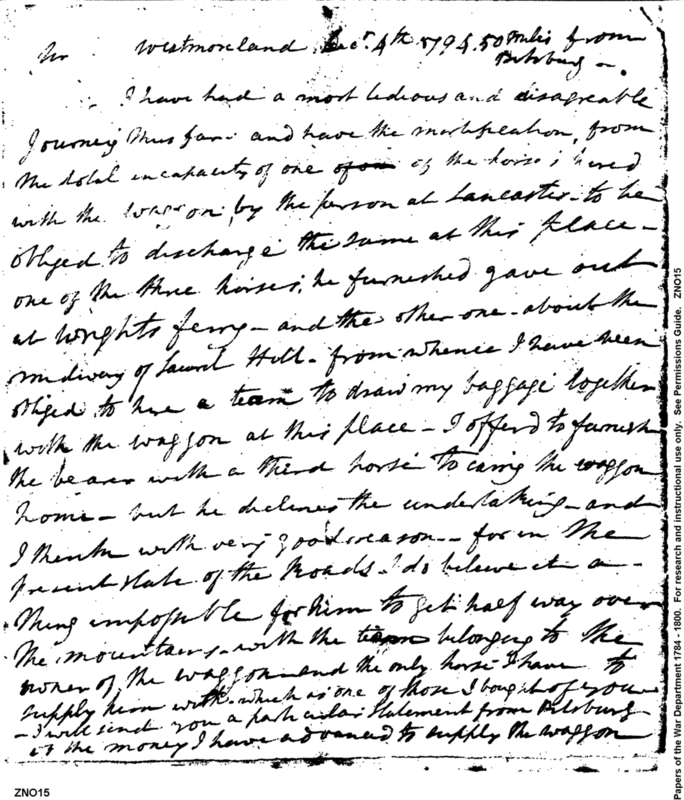 Sir Westmoreland Decr. 4th 1794. 50 miles from
Pitsburg -.
I have had a most tedious and disagreable
Journey thus far - and have the mortification, from
the total incapacity of one of the horses hired
with the waggon, by the person at Lancaster - to be
obliged to discharge the same at this place -
one of the three horses, he furnished gave out
at Wrights ferry - and the other one - about the
midway of Laurel Hill - from whence I have been
obliged to hire a team to draw my baggage together
with the waggon at this place - I offerd to furnish
the bearer with a third horse to carry the waggon
home - but he declines the undertaking - and
I think with very good reason - for in the
present state of the Roads - I do believe it a -
thing impossible for him to get half way over
the mountains - with the team belonging to the
owner of the waggon - and the only horse I have to
supply him with - which is one of those I bought of you
- I will send you a particular statement from Pitsburg -
of the money I have advanced to supply the waggon
ZNO15
Papers of the War Department 1784 - 1800. For research and instructional use only. See Permissions Guide. ZNO15